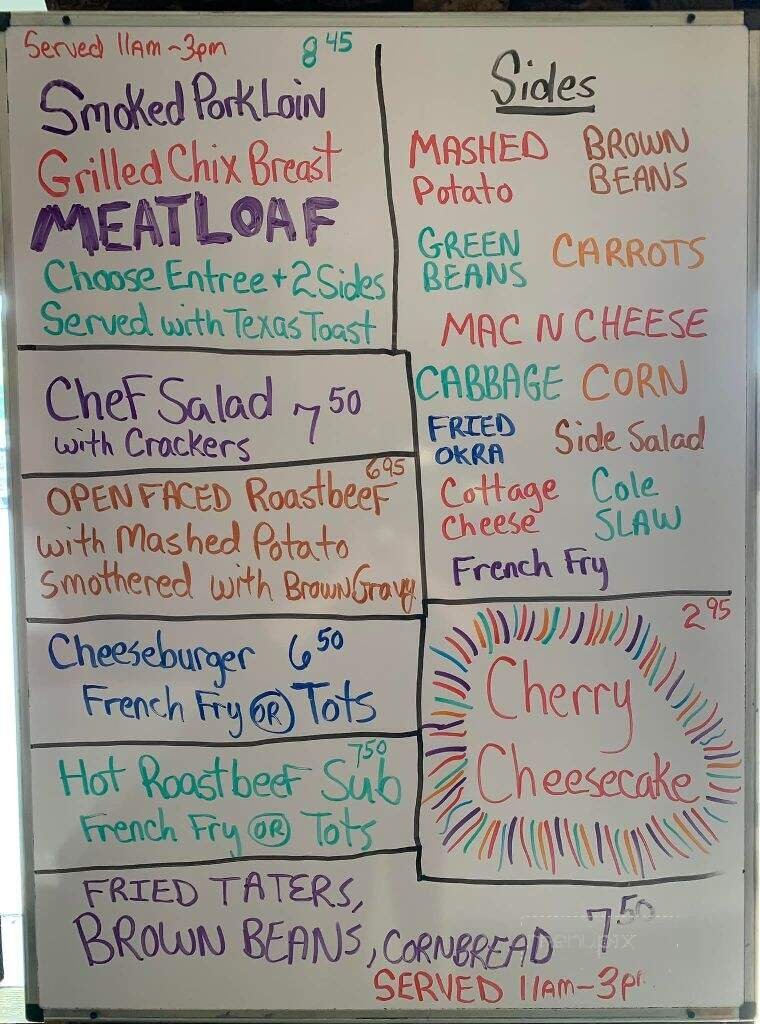 Served 11am-3pm 8 45
Smoked Pork Loin
Grilled Chix Breast
MEATLOAF
Choose Entree + 2 Sides
Served with Texas Toast
Chef Salad 7 50
with Crackers
6 95
OPEN FACED Roastbeef
with Mashed Potato
Smothered with Brown Gravy
Cheeseburger 6 50
French Fry OR Tots
7 50
Hot Roastbeef Sub
French Fry OR Tots
Sides
MASHED Potato
BROWN BEANS
GREEN BEANS
CARROTS
MAC N CHEESE
CABBAGE CORN
FRIED OKRA
Side Salad
Cottage Cheese
Cole SLAW
French Fry
2 95
Cherry
Cheesecake
FRIED TATERS,
BROWN BEANS, CORNBREAD 7 50
SERVED 11am-3p